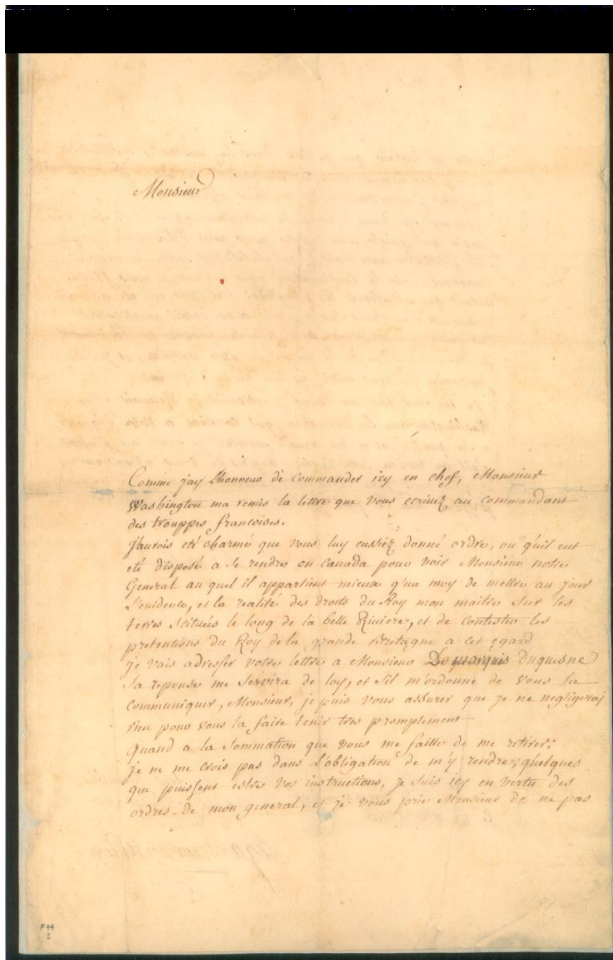 Monsieur
Comme jay Lhonneur de commander icy en chef, Monsieur
Washington ma remis la lettre que vous ecriviez au commandant
des trouppes francoises.
J'aurois eté charmé que vous luy eussiéz donné ordre, ou qu'il eut
eté disposé a se rendre en canada pour voir Monsieur notre
General au quel il appartient mieux qu'a moy de mettre au jour
L'evidence, et la realité des droits du Roy mon maitre sur les
terres scitués le long de la belle Riviere, et de contester les
pretentions du Roy de la grande Bretagne a cet egard
je vais adresser votre lettre a Monsieur Le marquis Duquesne
sa reponse me servira de loy, et s'il m'ordonne de vous la
communiquer, Monsieur, je puis vous assurer que je ne negligeraj
rien pour vous la faire tenir tres promptement
Quand a la sommation que vous me faittes de me retirer,
je ne me crois pas dans L'obligation de m'y rendre, quelques
que puissent estres vos instructions, je suis icy en vertu des
ordres de mon general, et je vous prie Monsieur de ne pas
F44
2